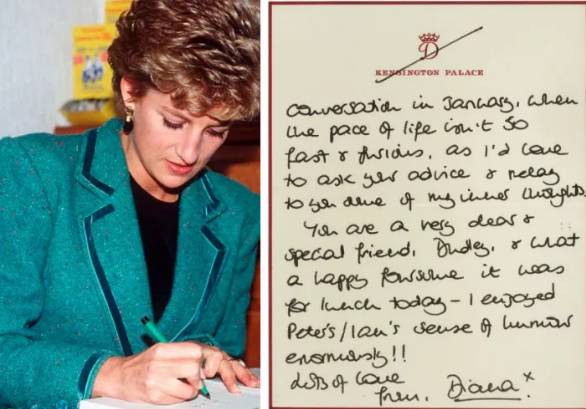 D
KENSINGTON PALACE
conversation in January, when
the pace of life isn't so
fast & furious, as I'd love
to ask your advice & relay
to you some of my inner thoughts.
You are a very dear &
special friend, Dudley, & what
a happy foursome it was
for lunch today - I enjoyed
Peter's/Ian's sense of humour
enormously!!
Lots of love
from, Diana x